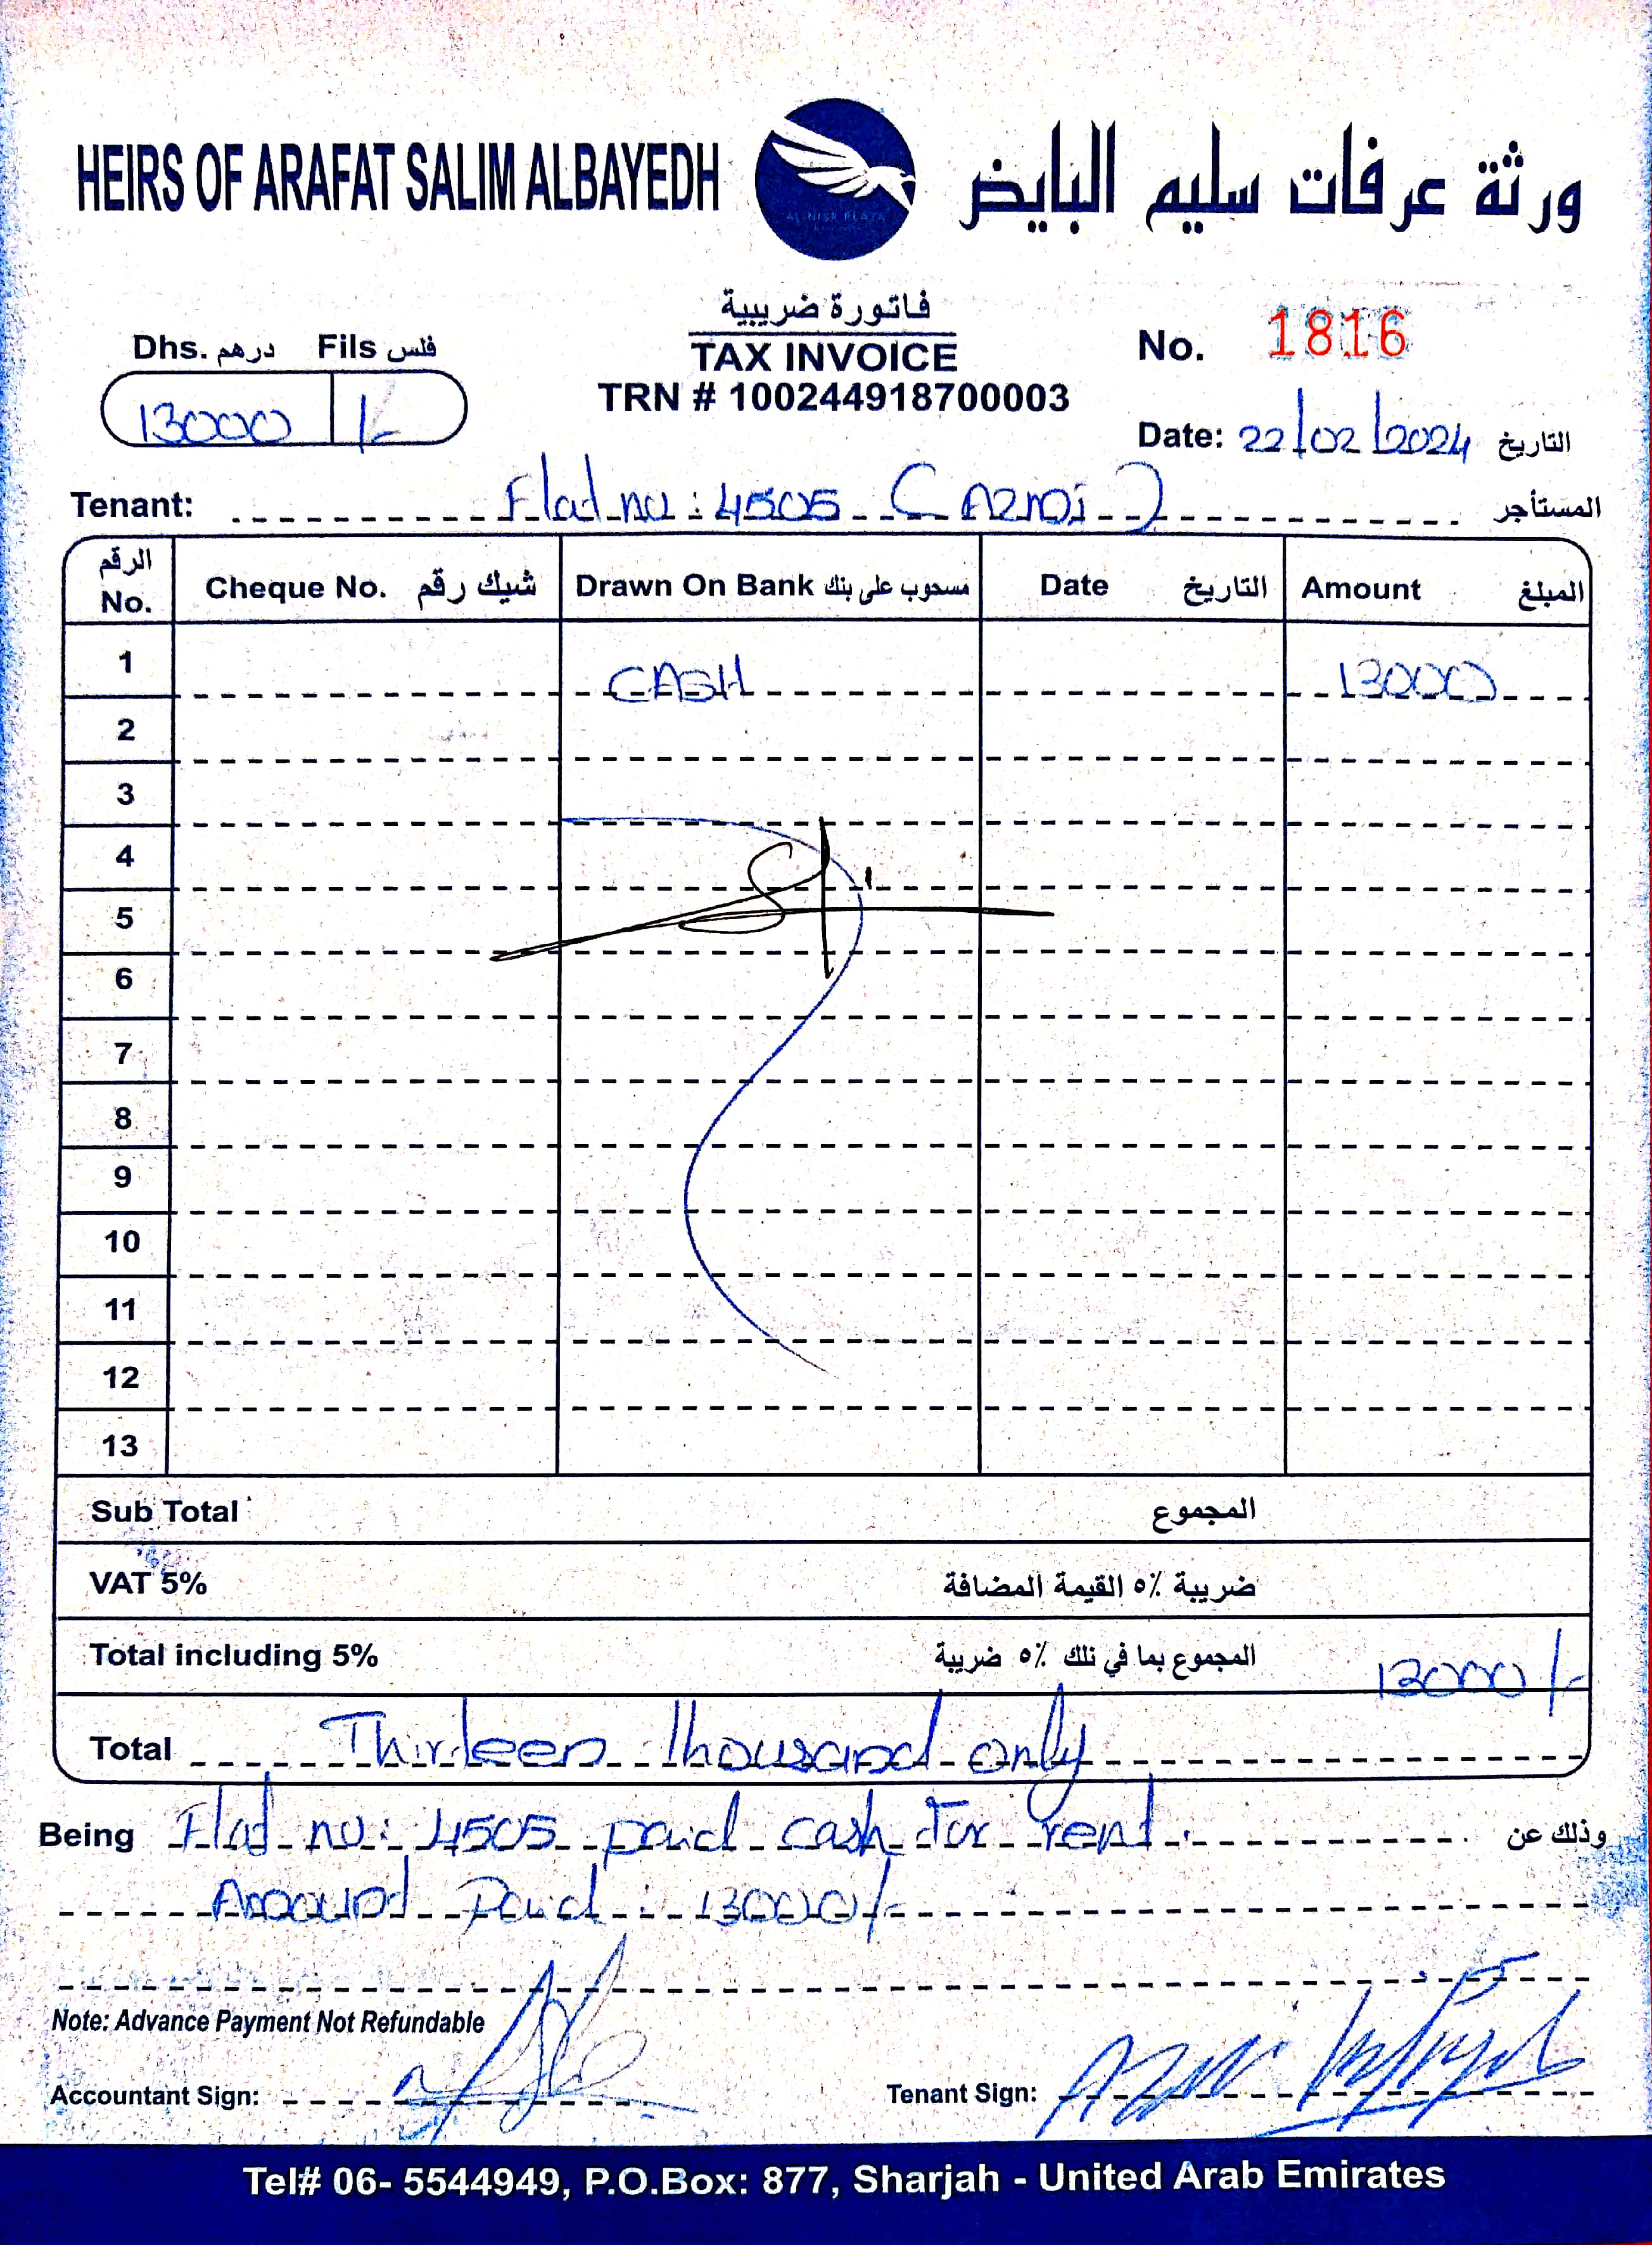 HEIRS OF ARAFAT SALIM ALBAYEDH
ورثة عرفات سليم البايض
AL NISR PLAZA
فاتورة ضريبية
TAX INVOICE
TRN # 100244918700003
Dhs. درهم Fils فلس
13000 /-
No. 1816
Date: 22/02/2024 التاريخ
Tenant: Flat no: 4505 ( ) المستأجر
الرقم No. Cheque No. شيك رقم Drawn On Bank مسحوب على بنك Date التاريخ Amount المبلغ
1 CASH 13000
2
3
4
5
6
7
8
9
10
11
12
13
Sub Total المجموع
VAT 5% ضريبة ٥٪ القيمة المضافة
Total including 5% المجموع بما في تلك ٥٪ ضريبة 13000/-
Total Thirteen thousand only
Being Flat no: 4505 paid cash for rent. وذلك عن
Amount Paid : 13000/-
Note: Advance Payment Not Refundable
Accountant Sign: Tenant Sign:
Tel# 06- 5544949, P.O.Box: 877, Sharjah - United Arab Emirates